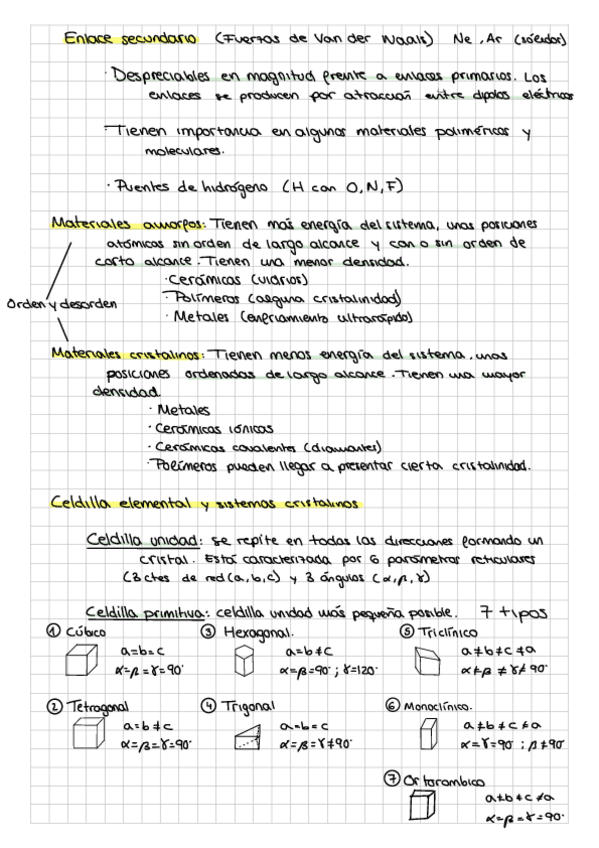 Enlace secundario (Fuerzas de Van der Waals) Ne, Ar (sólidos)
· Despreciables en magnitud frente a enlaces primarios. Los
enlaces se producen por atracción entre dipolos eléctricos
· Tienen importancia en algunos materiales poliméricos y
moleculares.
· Puentes de hidrógeno (H con O, N, F)
Materiales amorfos: Tienen más energía del sistema, unas posiciones
atómicas sin orden de largo alcance y con o sin orden de
corto alcance. Tienen una menor densidad.
· Cerámicas (vidrios)
Orden y desorden
· Polímeros (alguna cristalinidad)
· Metales (enfriamiento ultrarrápido)
Materiales cristalinos: Tienen menos energía del sistema, unas
posiciones ordenadas de largo alcance. Tienen una mayor
densidad.
· Metales
· Cerámicas iónicas
· Cerámicas covalentes (diamantes)
· Polímeros pueden llegar a presentar cierta cristalinidad.
Celdilla elemental y sistemas cristalinos
Celdilla unidad: se repite en todas las direcciones formando un
cristal. Está caracterizada por 6 parámetros reticulares
(3 ctes de red (a, b, c) y 3 ángulos (α, β, γ)
Celdilla primitiva: celdilla unidad más pequeña posible. 7 tipos
① Cúbico
a=b=c
α=β=γ=90°
② Tetragonal
a=b≠c
α=β=γ=90°
③ Hexagonal.
a=b≠c
α=β=90°; γ=120°
④ Trigonal
a=b=c
α=β=γ≠90°
⑤ Triclínico
a≠b≠c≠a
α≠β≠γ≠90°
⑥ Monoclínico.
a≠b≠c≠a
α=γ=90°; β≠90°
⑦ Ortorombico
a≠b≠c≠a
α=β=γ=90°